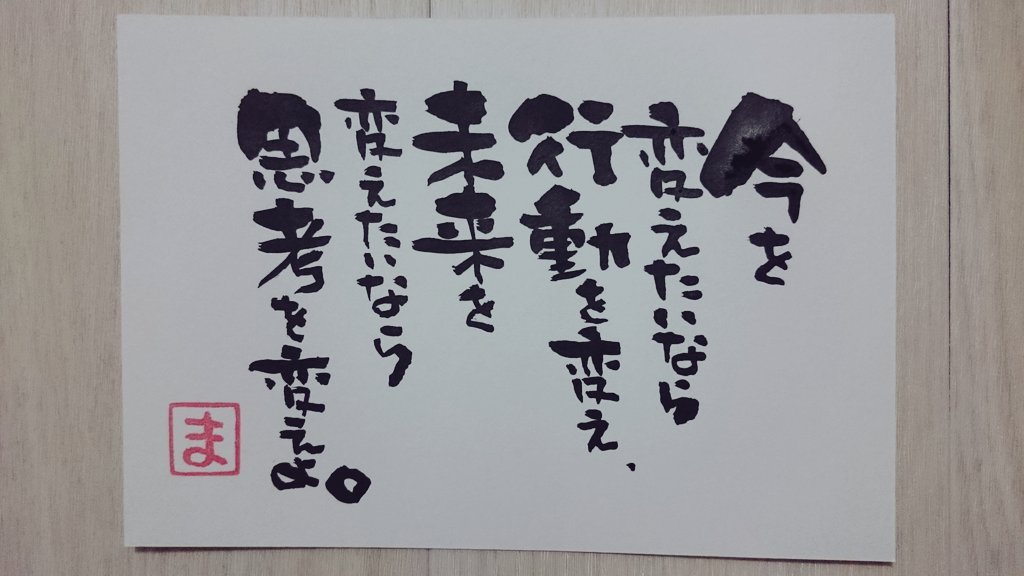 今を
変えたいなら
行動を変え、
未来を
変えたいなら
思考を変えよ。
ま